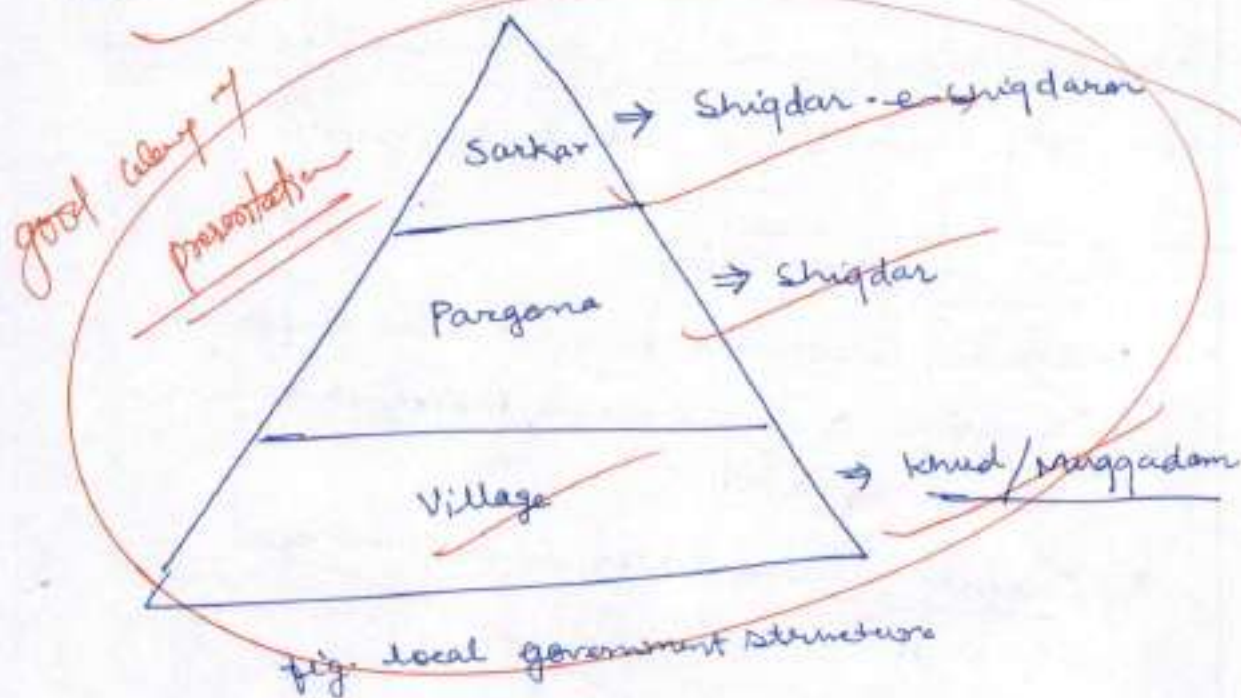 good way of
presentation
Sarkar ⇒ Shiqdar-e-shiqdaran
Pargana ⇒ Shiqdar
Village ⇒ Khud/Muqqadam
fig. local government structure